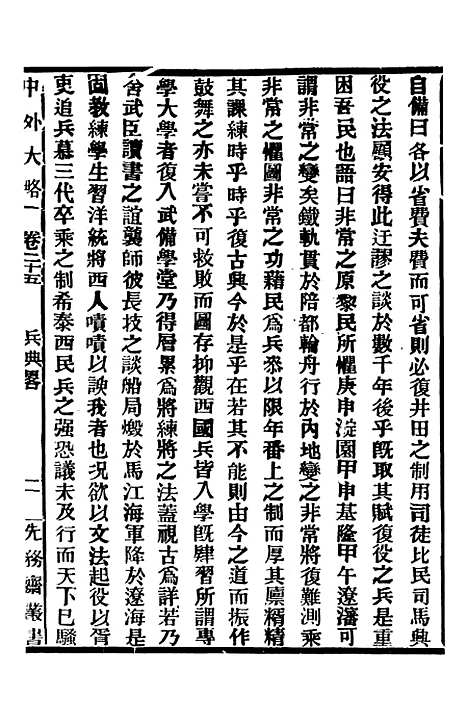 自備曰各以省費夫費而可省則必復井田之制用司徒比民司馬興
役之法顧安得此迂謬之談於數千年後乎旣取其賦復役之兵是重
困吾民也語曰非常之原黎民所懼庚申淀園甲申基隆甲午遼瀋可
謂非常之變矣鐵軌貫於陪都輪舟行於內地變之非常將復難測乘
非常之懼圖非常之功藉民爲兵忝以限年番上之制而厚其廩糈精
其課練時乎時乎復古興今於是乎在若其不能則由今之道而振作
鼓舞之亦未嘗不可救敗而圖存抑觀西國兵皆入學旣肄習所謂專
學大學者復入武備學堂乃得層累爲將練將之法蓋視古爲詳若乃
舍武臣讀書之誼襲師彼長技之談船局燬於馬江海軍降於遼海是
固敎練學生習洋統將西人嘖嘖以諛我者也況欲以文法起役以胥
吏追兵慕三代卒乘之制希泰西民兵之强恐議未及行而天下已騷
中外大略一 卷二十五 兵典畧 二 先務齋叢書